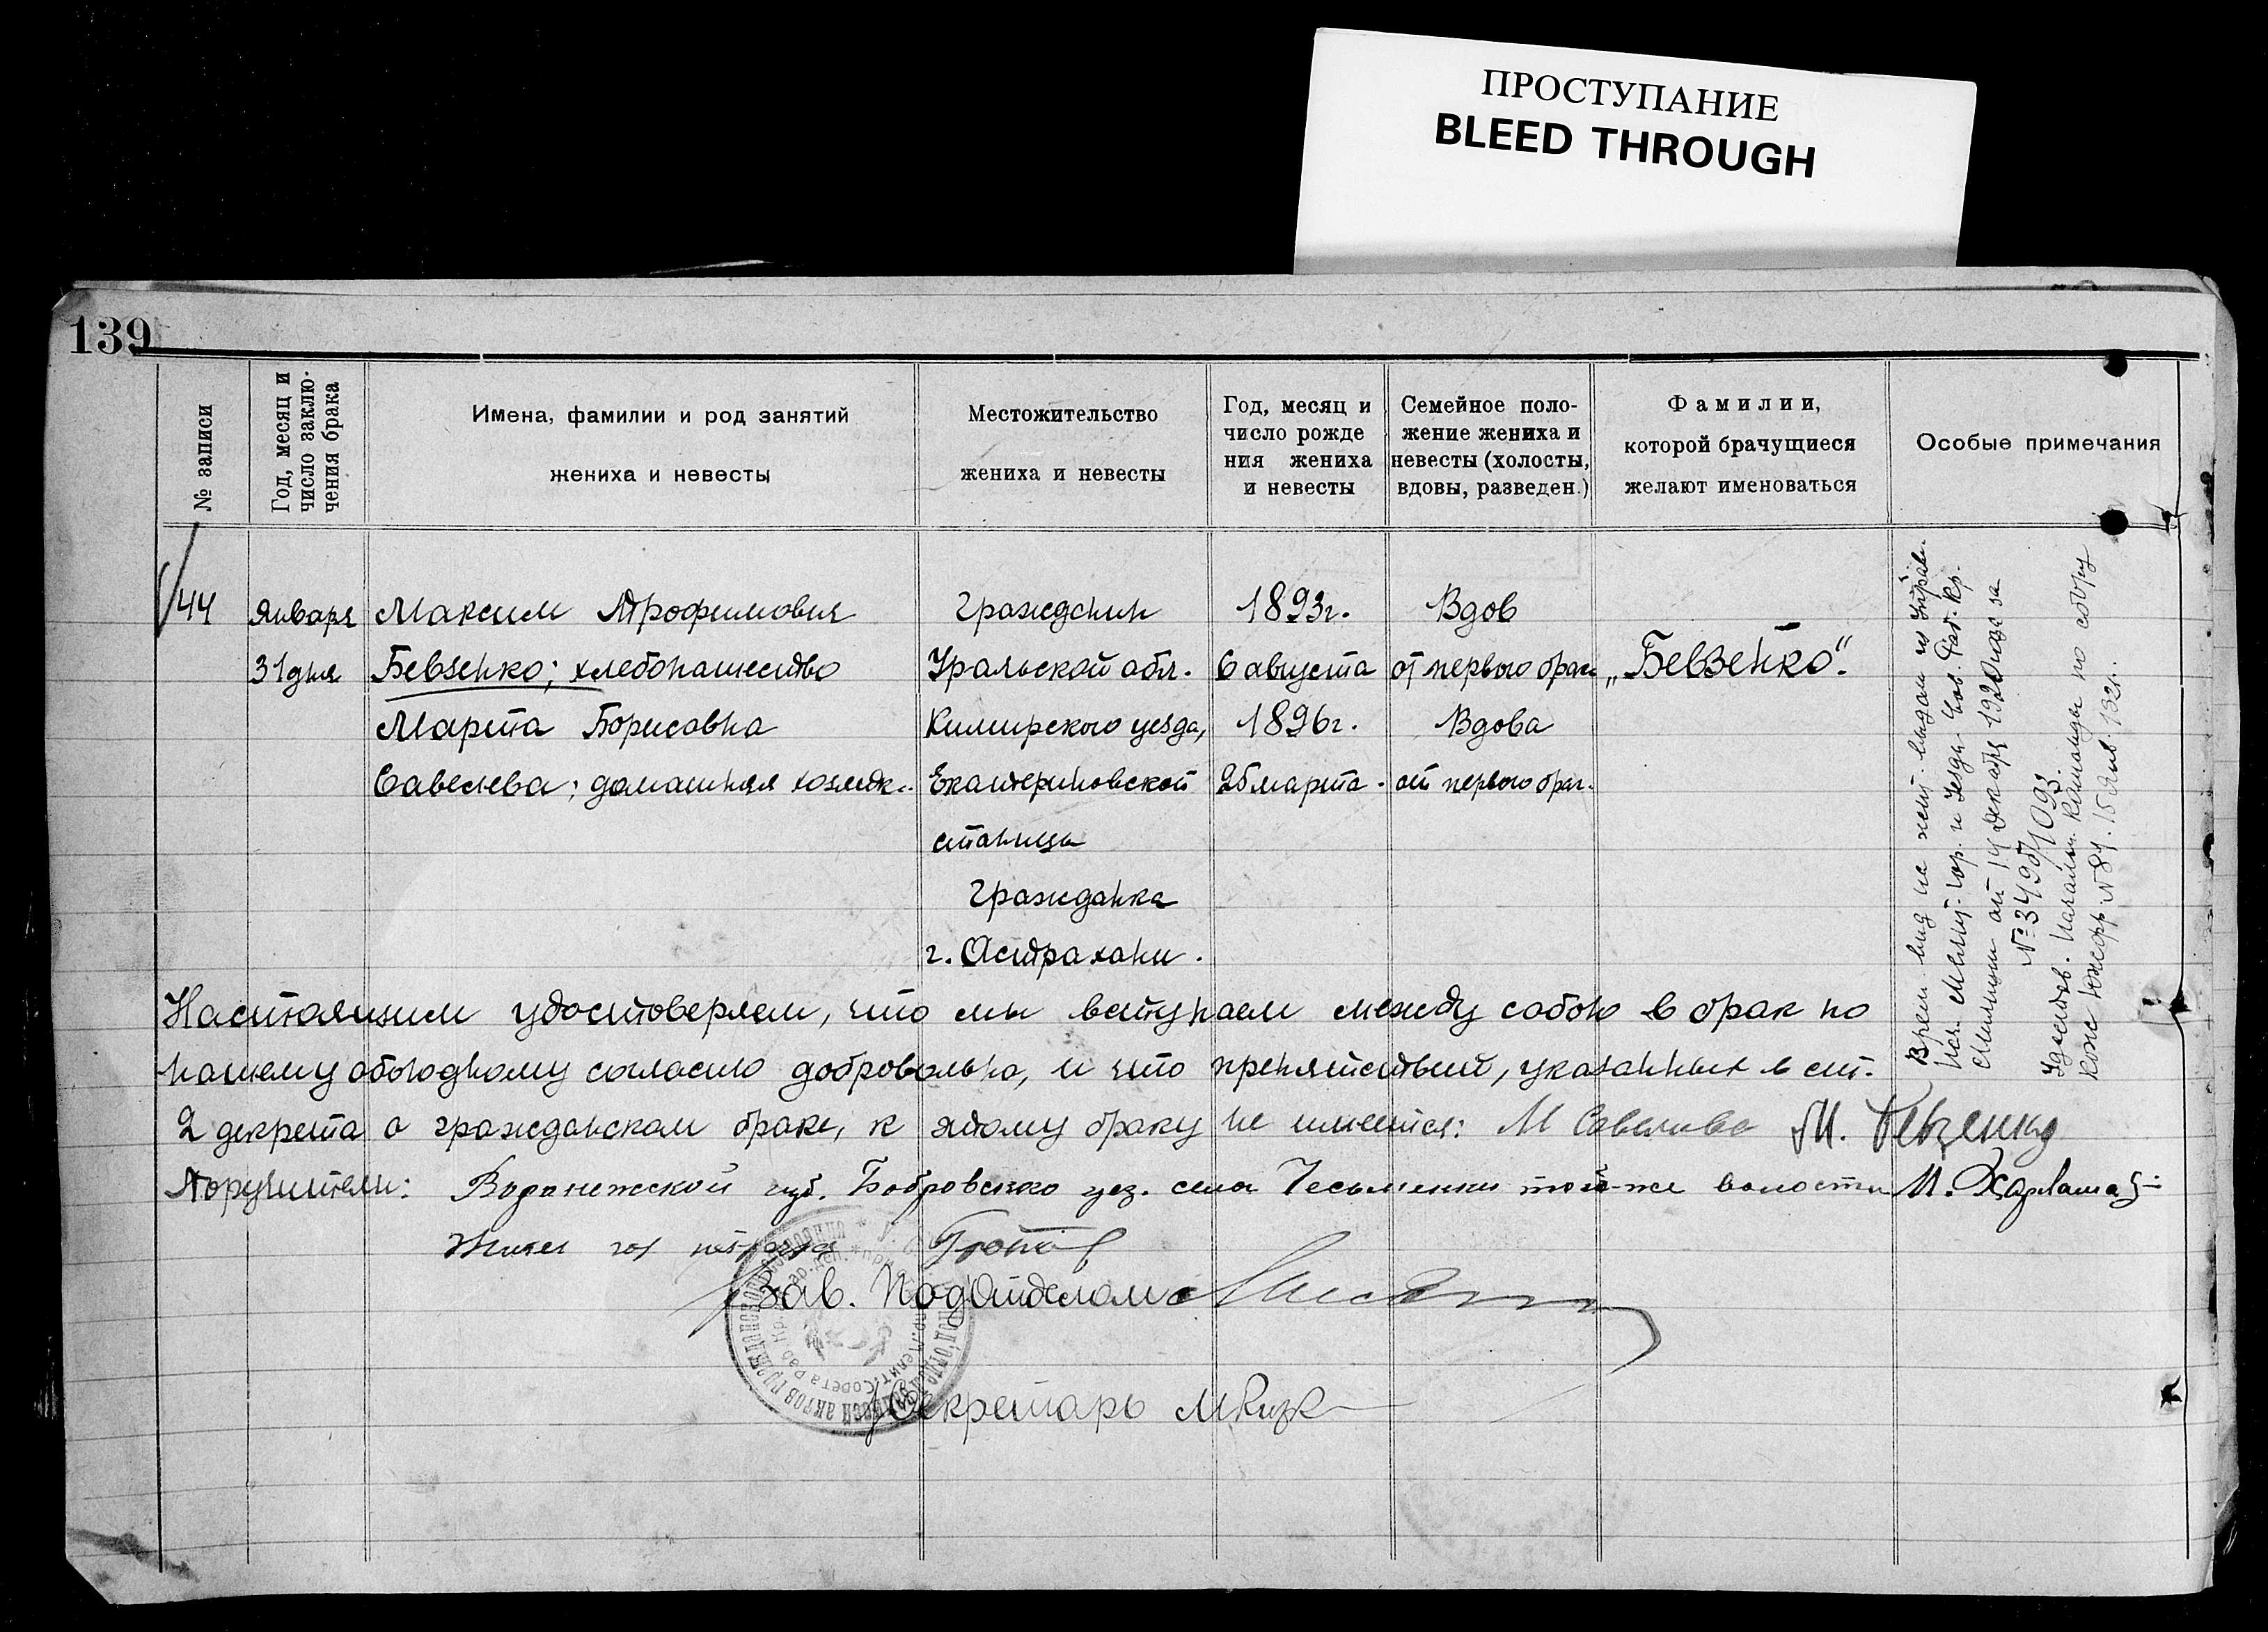 ПРОСТУПАНИЕ
BLEED THROUGH
139
№ записи
Год, месяц и
число заклю-
чения брака
Имена, фамилии и род занятий
жениха и невесты
Местожительство
жениха и невесты
Год, месяц и
число рожде
ния жениха
и невесты
Семейное поло-
жение жениха и
невесты (холосты,
вдовы, разведен.)
Фамилии,
которой брачущиеся
желают именоваться
Особые примечания
44
Января
31 дня
Максим Трофимович
Бевзенко; хлебопашество
Марта Борисовна
Савельева; домашняя хозяйк.
Гражданин
Уральской обл.
уезда,
Екатериновской
станицы
Гражданка
г. Астрахани.
1893г.
6 августа
1896г.
25 марта.
Вдов
от первого брак
Вдова
от первого брак.
„Бевзенко".
Врем. вид на жит. выдан из Управ.
Нач. Милиц. гор. и Уезда Сов. Раб. Кр.
Милиции от 14 декабря 1920 года за
№ 3495/1093.
Удостов. Началь. Команды по сбору
кож № 84. 15 Янв. 132г.
Настоящим удостоверяем, что мы вступаем между собою в брак по
нашему обоюдному согласию добровольно, и что препятствий, указанных в ст.
2 декрета о гражданском браке, к этому браку не имеется: М Савельева М. Бевзенко
Поручители: Воронежской губ. Бобровского уез. села Чесменки той-же волости И.
Зав. Подотделом
Секретарь